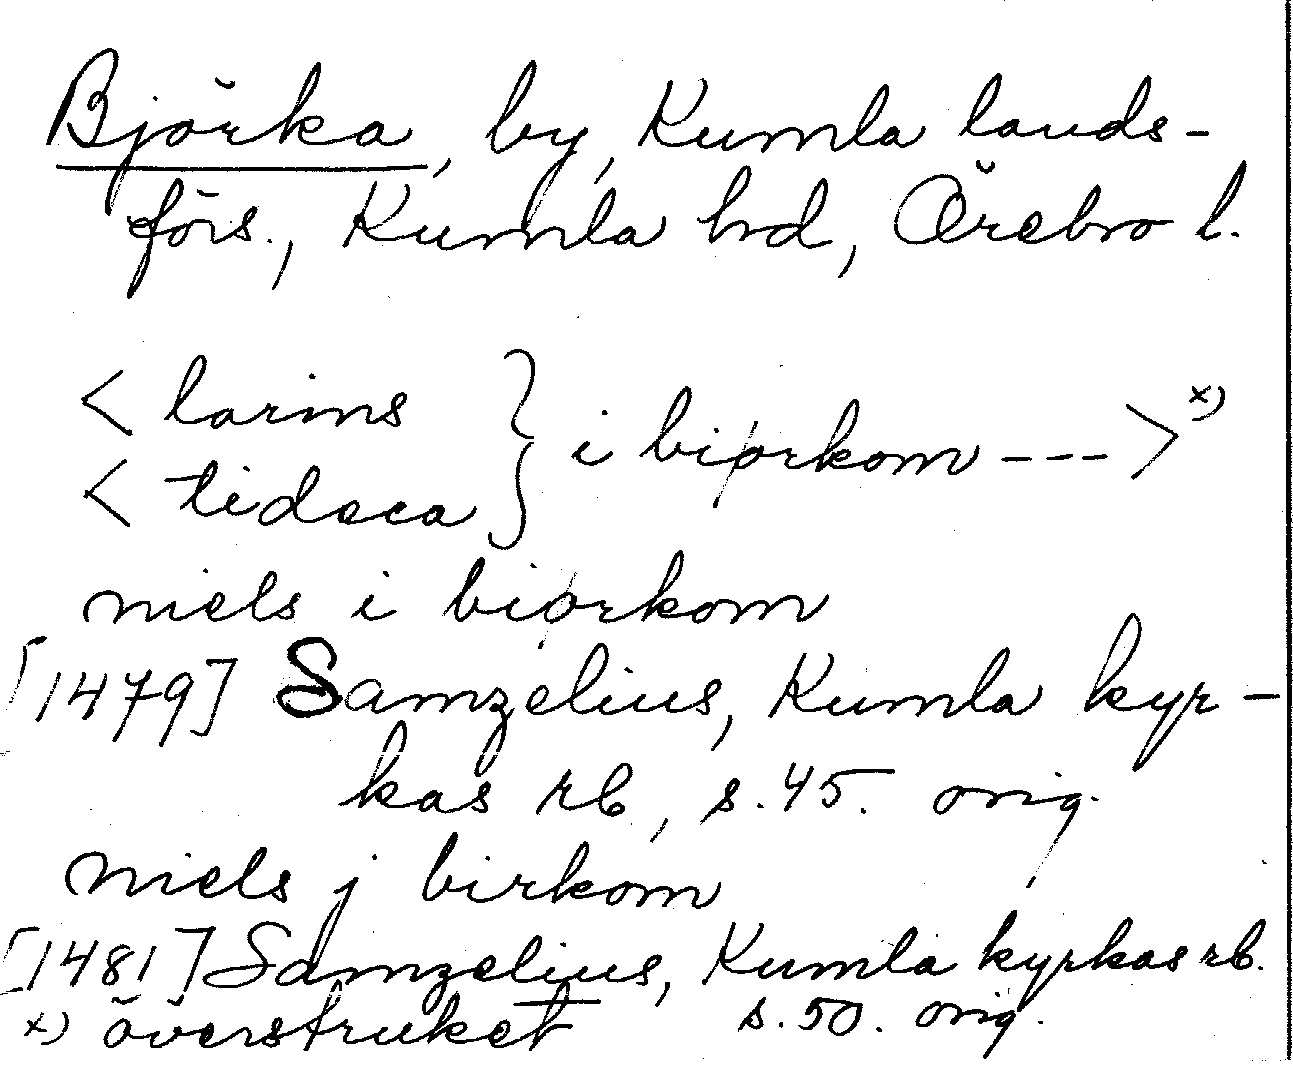 Björka, by, Kumla lands-
förs., Kumla hd, Örebro l.
< larins } i biørkom --- > x)
< tidaca }
niels i biørkom
[1479] Samzelius, Kumla kyr-
kas rb, s.45. orig.
niels j birkom
[1481] Samzelius, Kumla kyrkas rb.
s.50. orig.
x) överstruket